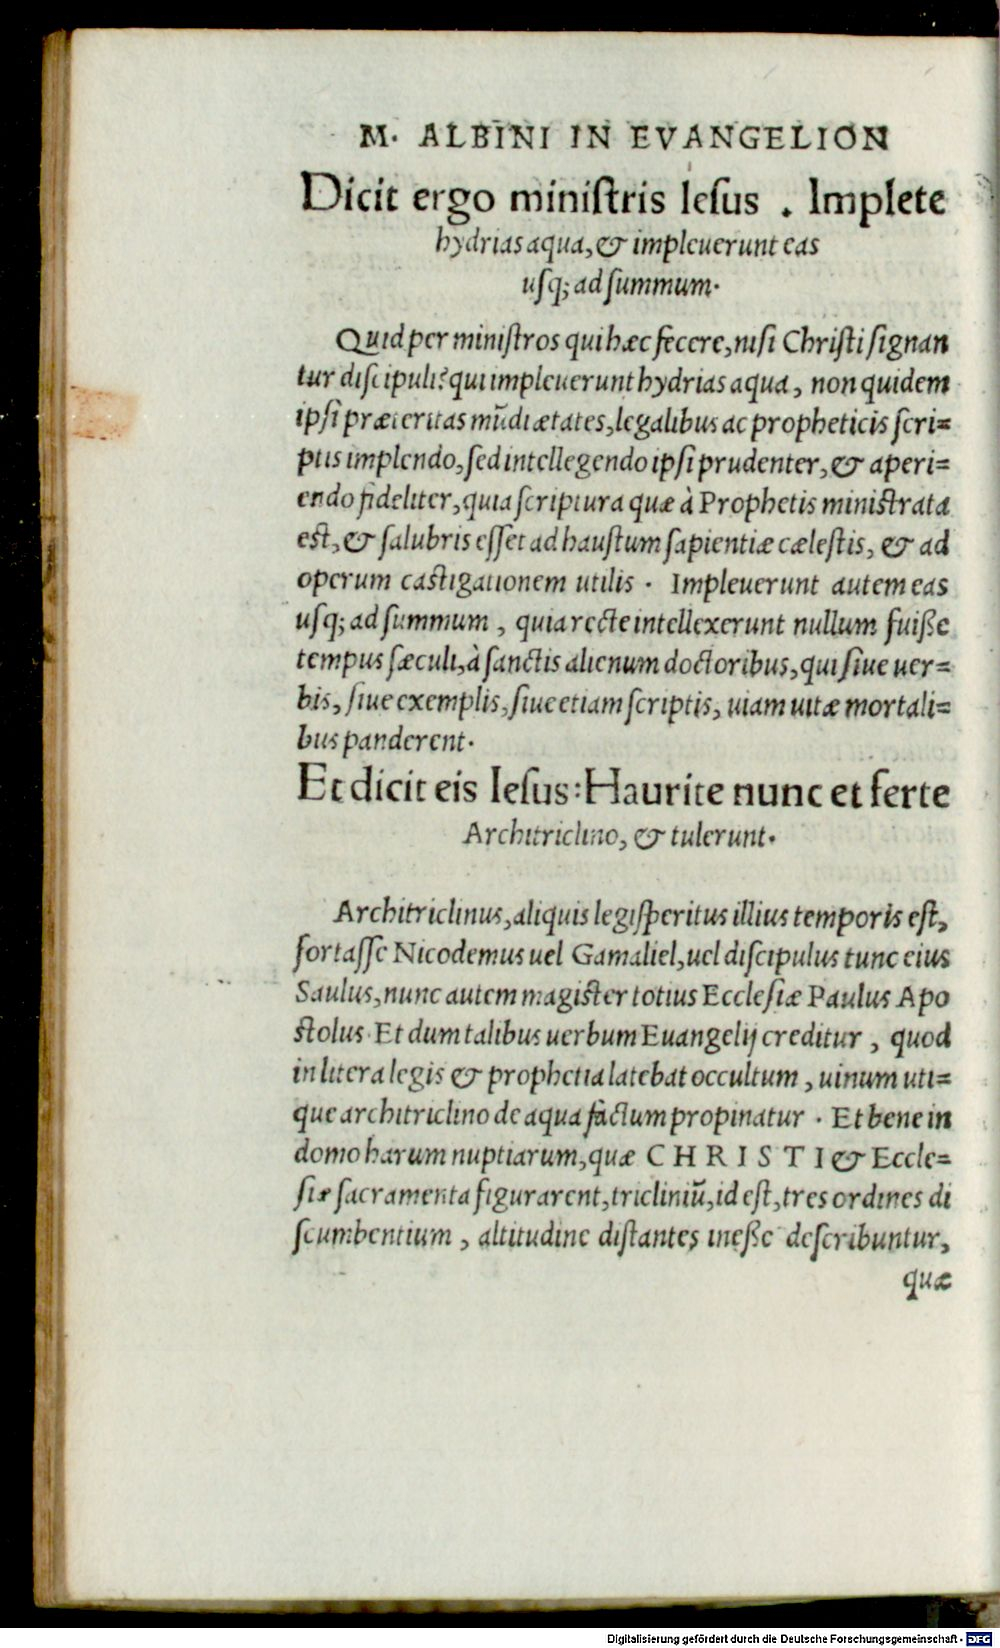 M. ALBINI IN EVANGELION
Dicit ergo miniſtris Ieſus . Implete
hydrias aqua, & impleuerunt eas
uſq; ad ſummum.
Quid per miniſtros qui hæc fecere, niſi Chriſti ſignan
tur diſcipuli? qui impleuerunt hydrias aqua, non quidem
ipſi præteritas mūdi ætates, legalibus ac propheticis ſcri=
ptis implendo, ſed intellegendo ipſi prudenter, & aperi=
endo fideliter, quia ſcriptura quæ à Prophetis miniſtrata
eſt, & ſalubris eſſet ad hauſtum ſapientiæ cæleſtis, & ad
operum caſtigationem utilis . Impleuerunt autem eas
uſq; ad ſummum, quia recte intellexerunt nullum fuiße
tempus ſæculi, à ſanctis alienum doctoribus, qui ſiue uer=
bis, ſiue exemplis, ſiue etiam ſcriptis, uiam uitæ mortali=
bus panderent.
Et dicit eis Ieſus: Haurite nunc et ferte
Architriclino, & tulerunt.
Architriclinus, aliquis legiſperitus illius temporis eſt,
fortaſſe Nicodemus uel Gamaliel, uel diſcipulus tunc eius
Saulus, nunc autem magiſter totius Eccleſiæ Paulus Apo
ſtolus. Et dum talibus uerbum Euangelij creditur, quod
in litera legis & prophetia latebat occultum, uinum uti=
que architriclino de aqua fàctum propinatur . Et bene in
domo harum nuptiarum, quæ C H R I S T I & Eccle=
ſiæ ſacramenta figurarent, tricliniū, id eſt, tres ordines di
ſcumbentium, altitudine diſtantes ineße deſcribuntur,
quæ
Digitalisierung gefördert durch die Deutsche Forschungsgemeinschaft - DFG